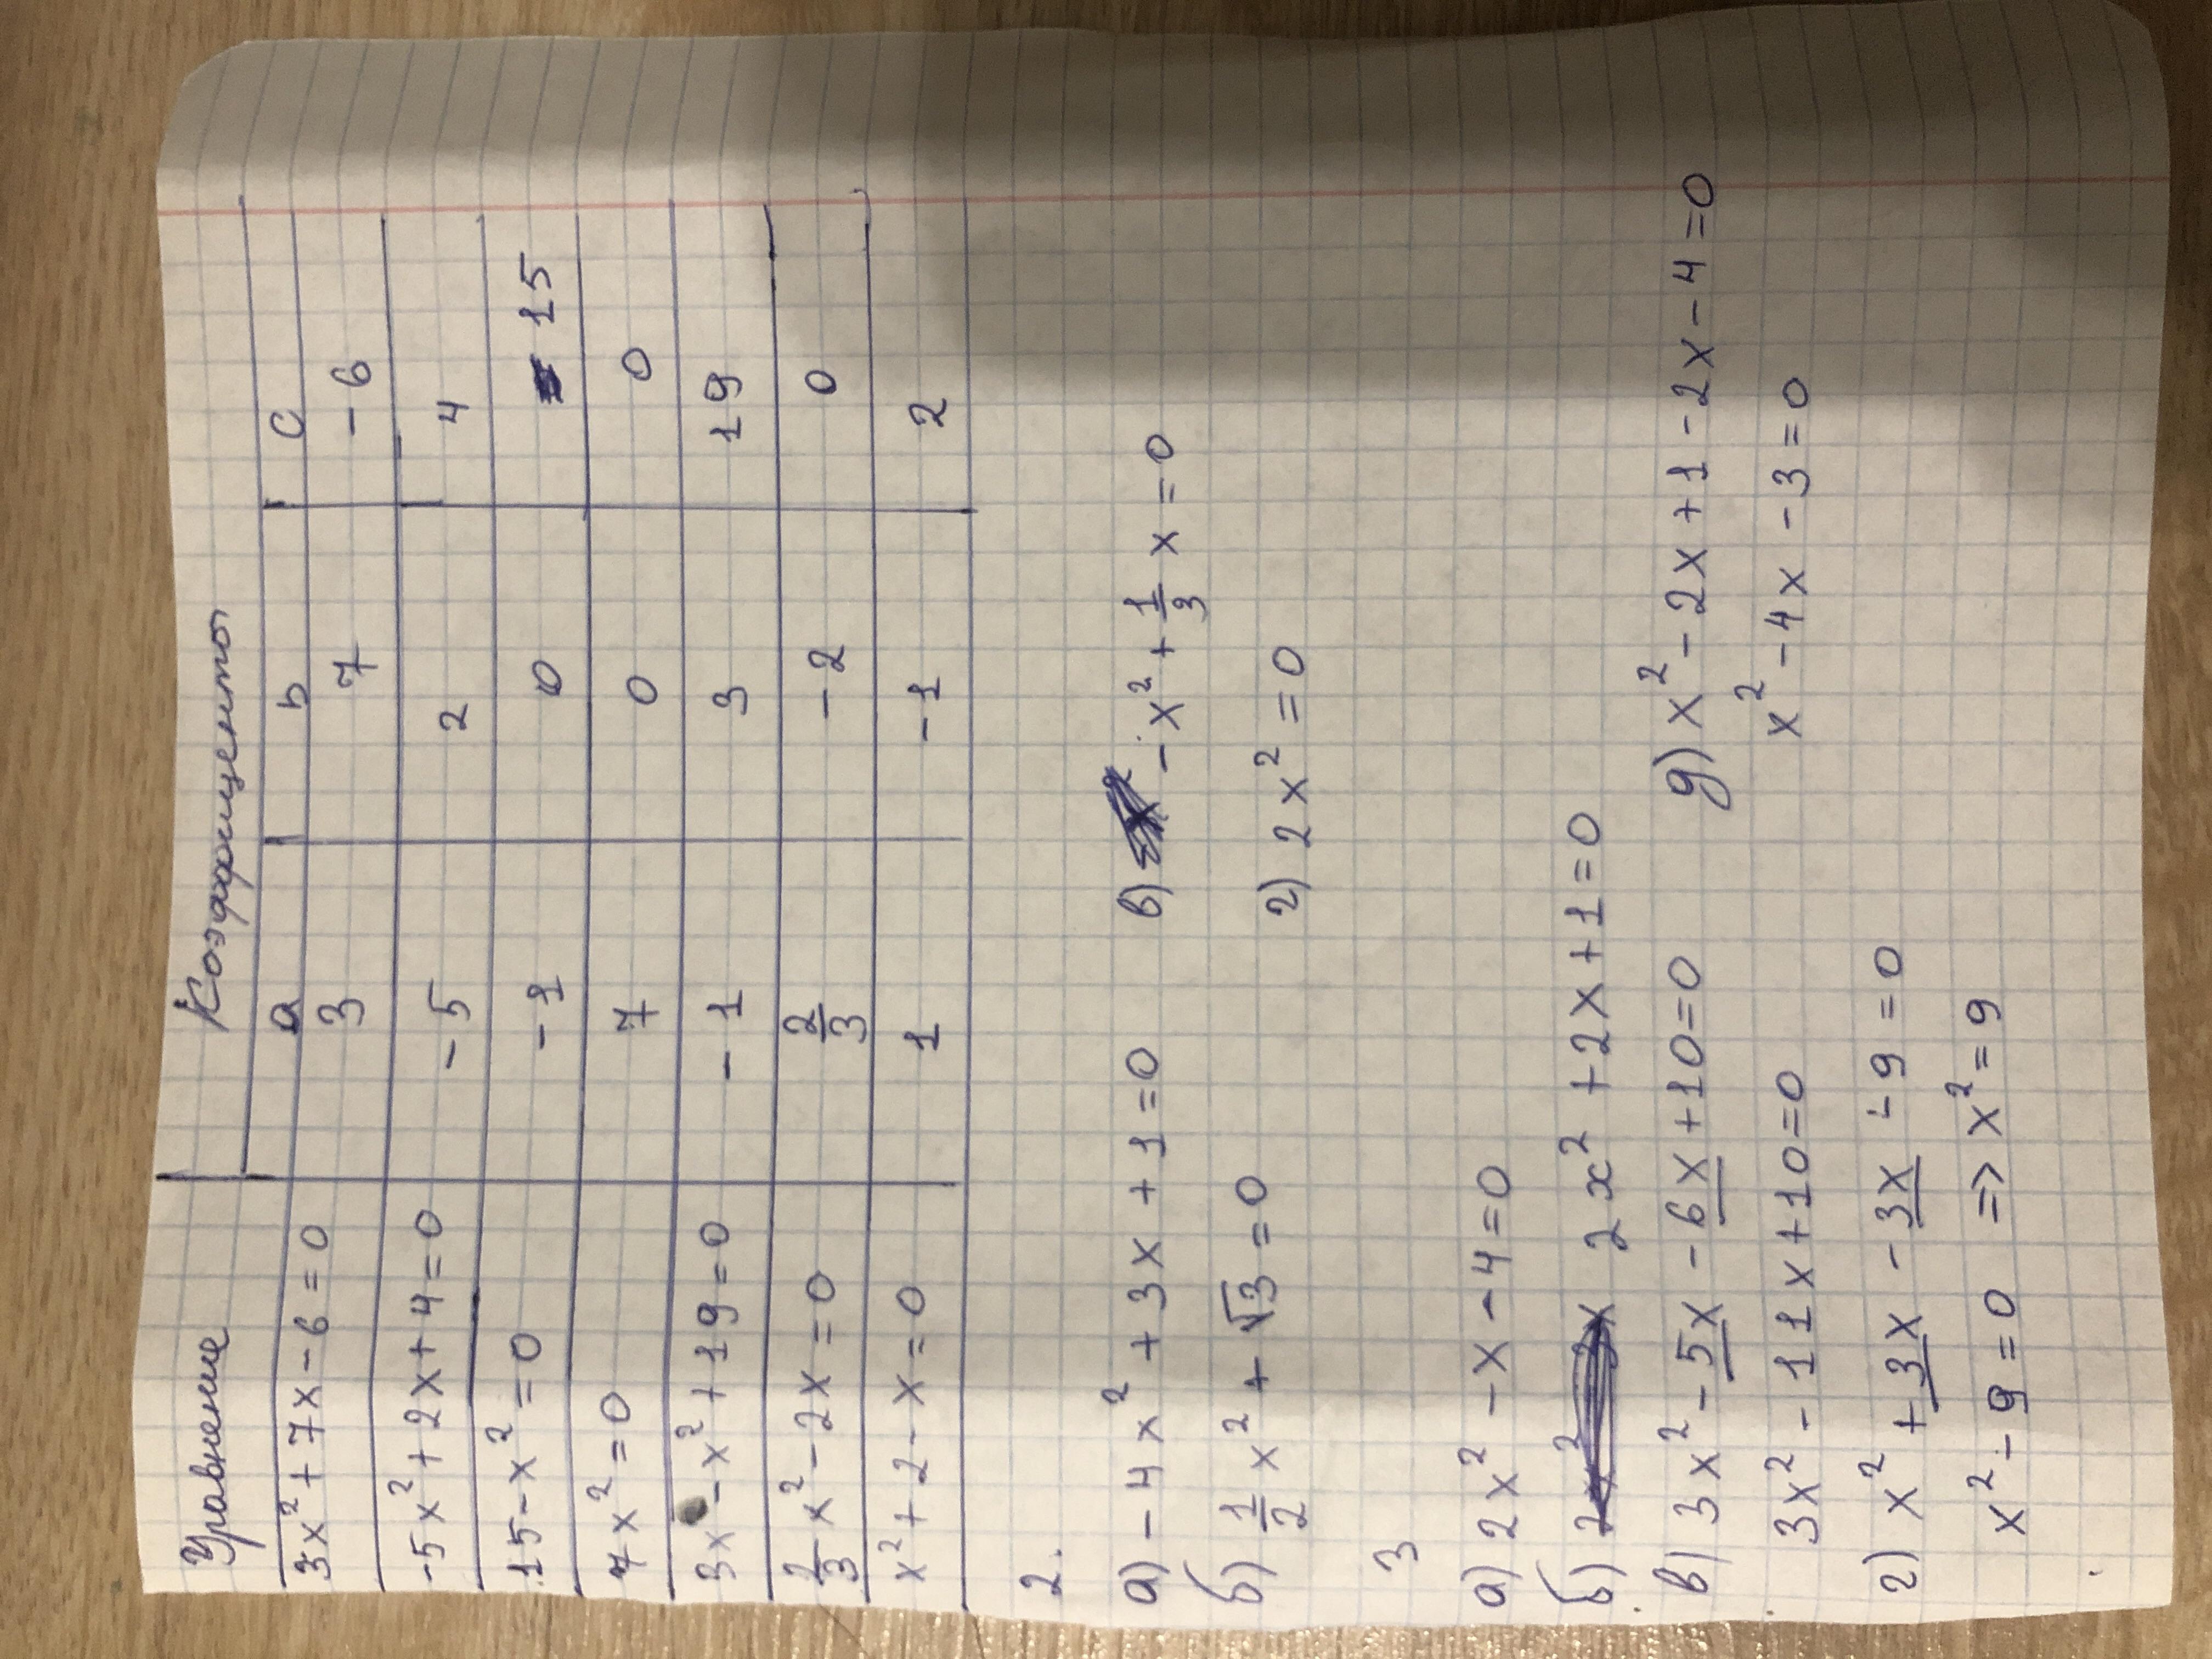 Уравнение Коэффициенты
a b c
3x² + 7x - 6 = 0 3 7 - 6
-5x² + 2x + 4 = 0 - 5 2 4
15 - x² = 0 - 1 0 15
7x² = 0 7 0 0
3x - x² + 19 = 0 - 1 3 19
2/3 x² - 2x = 0 2/3 - 2 0
x² + 2 - x = 0 1 - 1 2
2.
а) - 4x² + 3x + 1 = 0 в) - x² + 1/3 x = 0
б) 1/2 x² + √3 = 0 г) 2x² = 0
3
а) 2x² - x - 4 = 0
б) 2x² + 2x + 1 = 0
в) 3x² - 5x - 6x + 10 = 0 д) x² - 2x + 1 - 2x - 4 = 0
3x² - 11x + 10 = 0 x² - 4x - 3 = 0
г) x² + 3x - 3x - 9 = 0
x² - 9 = 0 => x² = 9